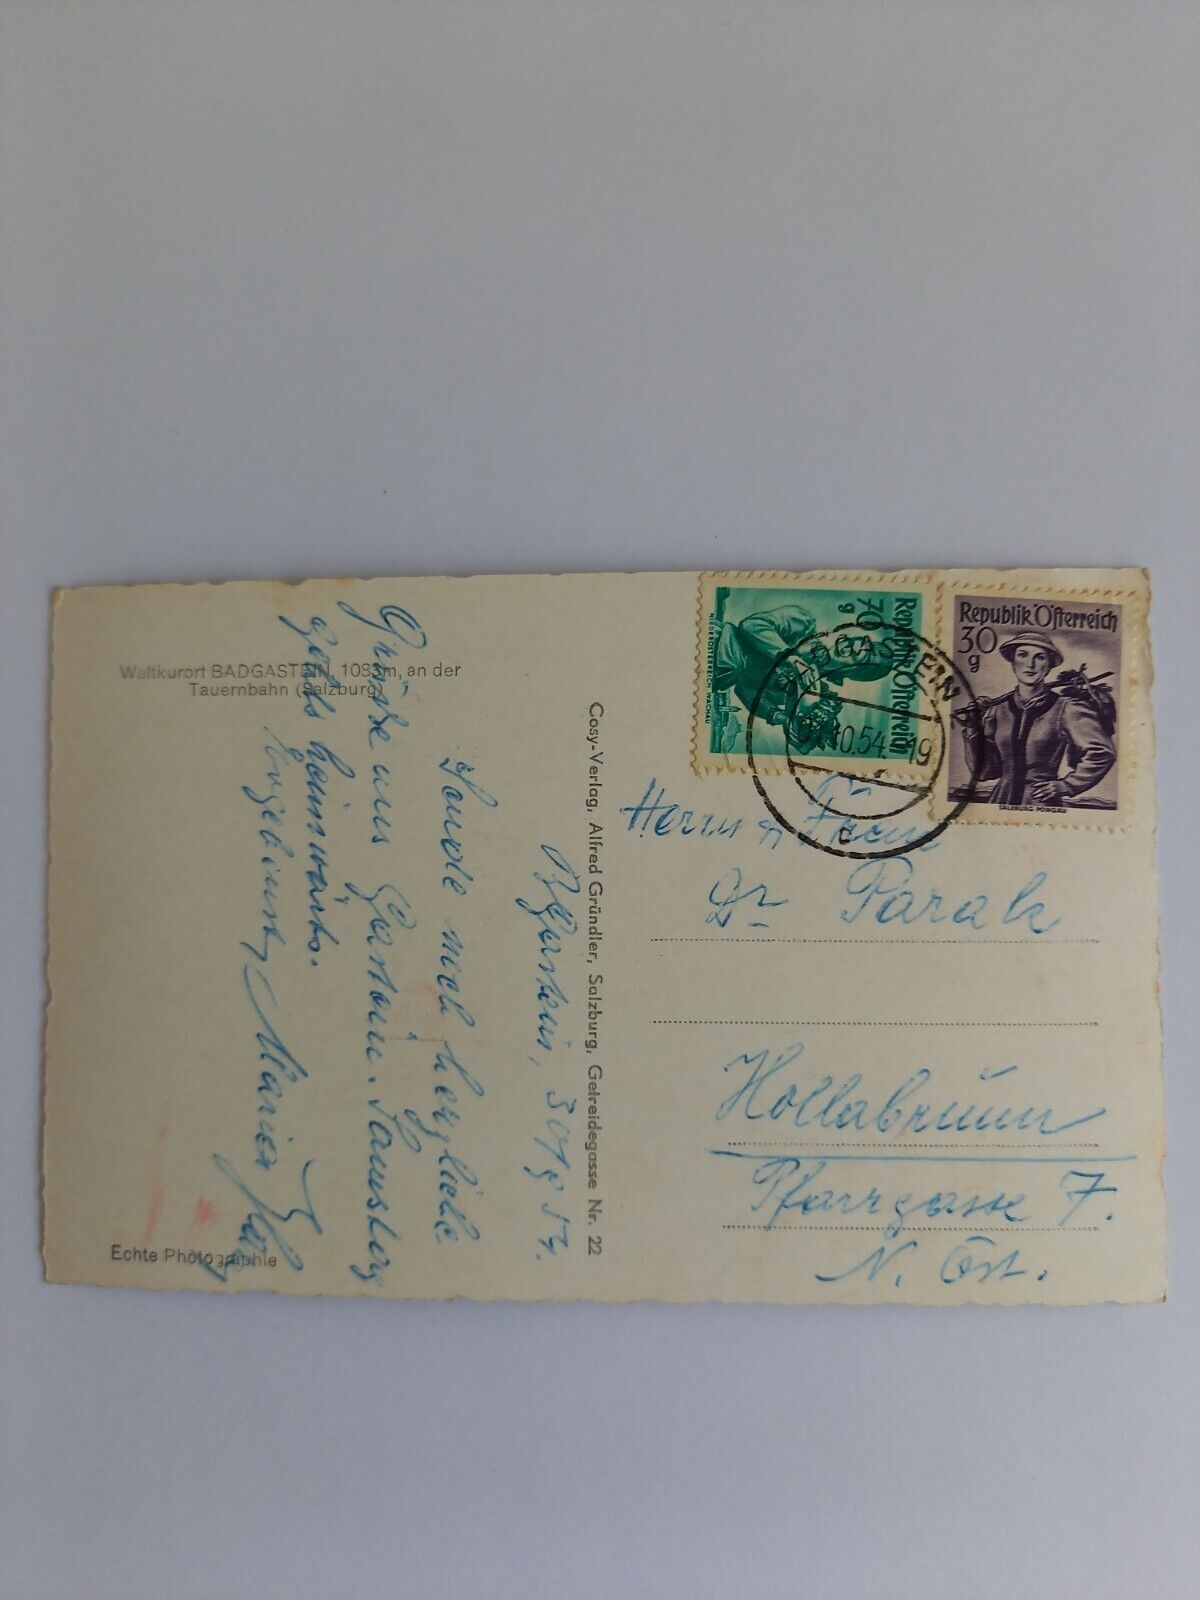 Weltkurort BADGASTEIN, 1083m, an der
Tauernbahn (Salzburg)
30/9 54.
Sende noch herzliche
Grüße aus Gastein. Samstag
geht's heimwärts.
Marie
Echte Photographie
Cosy-Verlag, Alfred Gründler, Salzburg, Getreidegasse Nr. 22
Republik Österreich
70
g
NIEDERÖSTERREICH WACHAU
Republik Österreich
30
g
SALZBURG PONGAU
BADGASTEIN
10.54 19
c
Herrn Frau
Dr Parak
Hollabrunn
Pfarrgasse 7.
N. Öst.